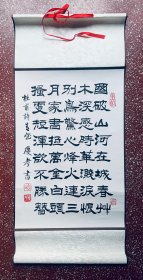 國破山河在城春艸
木深感時華濺淚恨
別鳥驚心烽火連三
月家書抵萬金白頭
搔更短渾欲不勝簪
杜甫詩春望 書